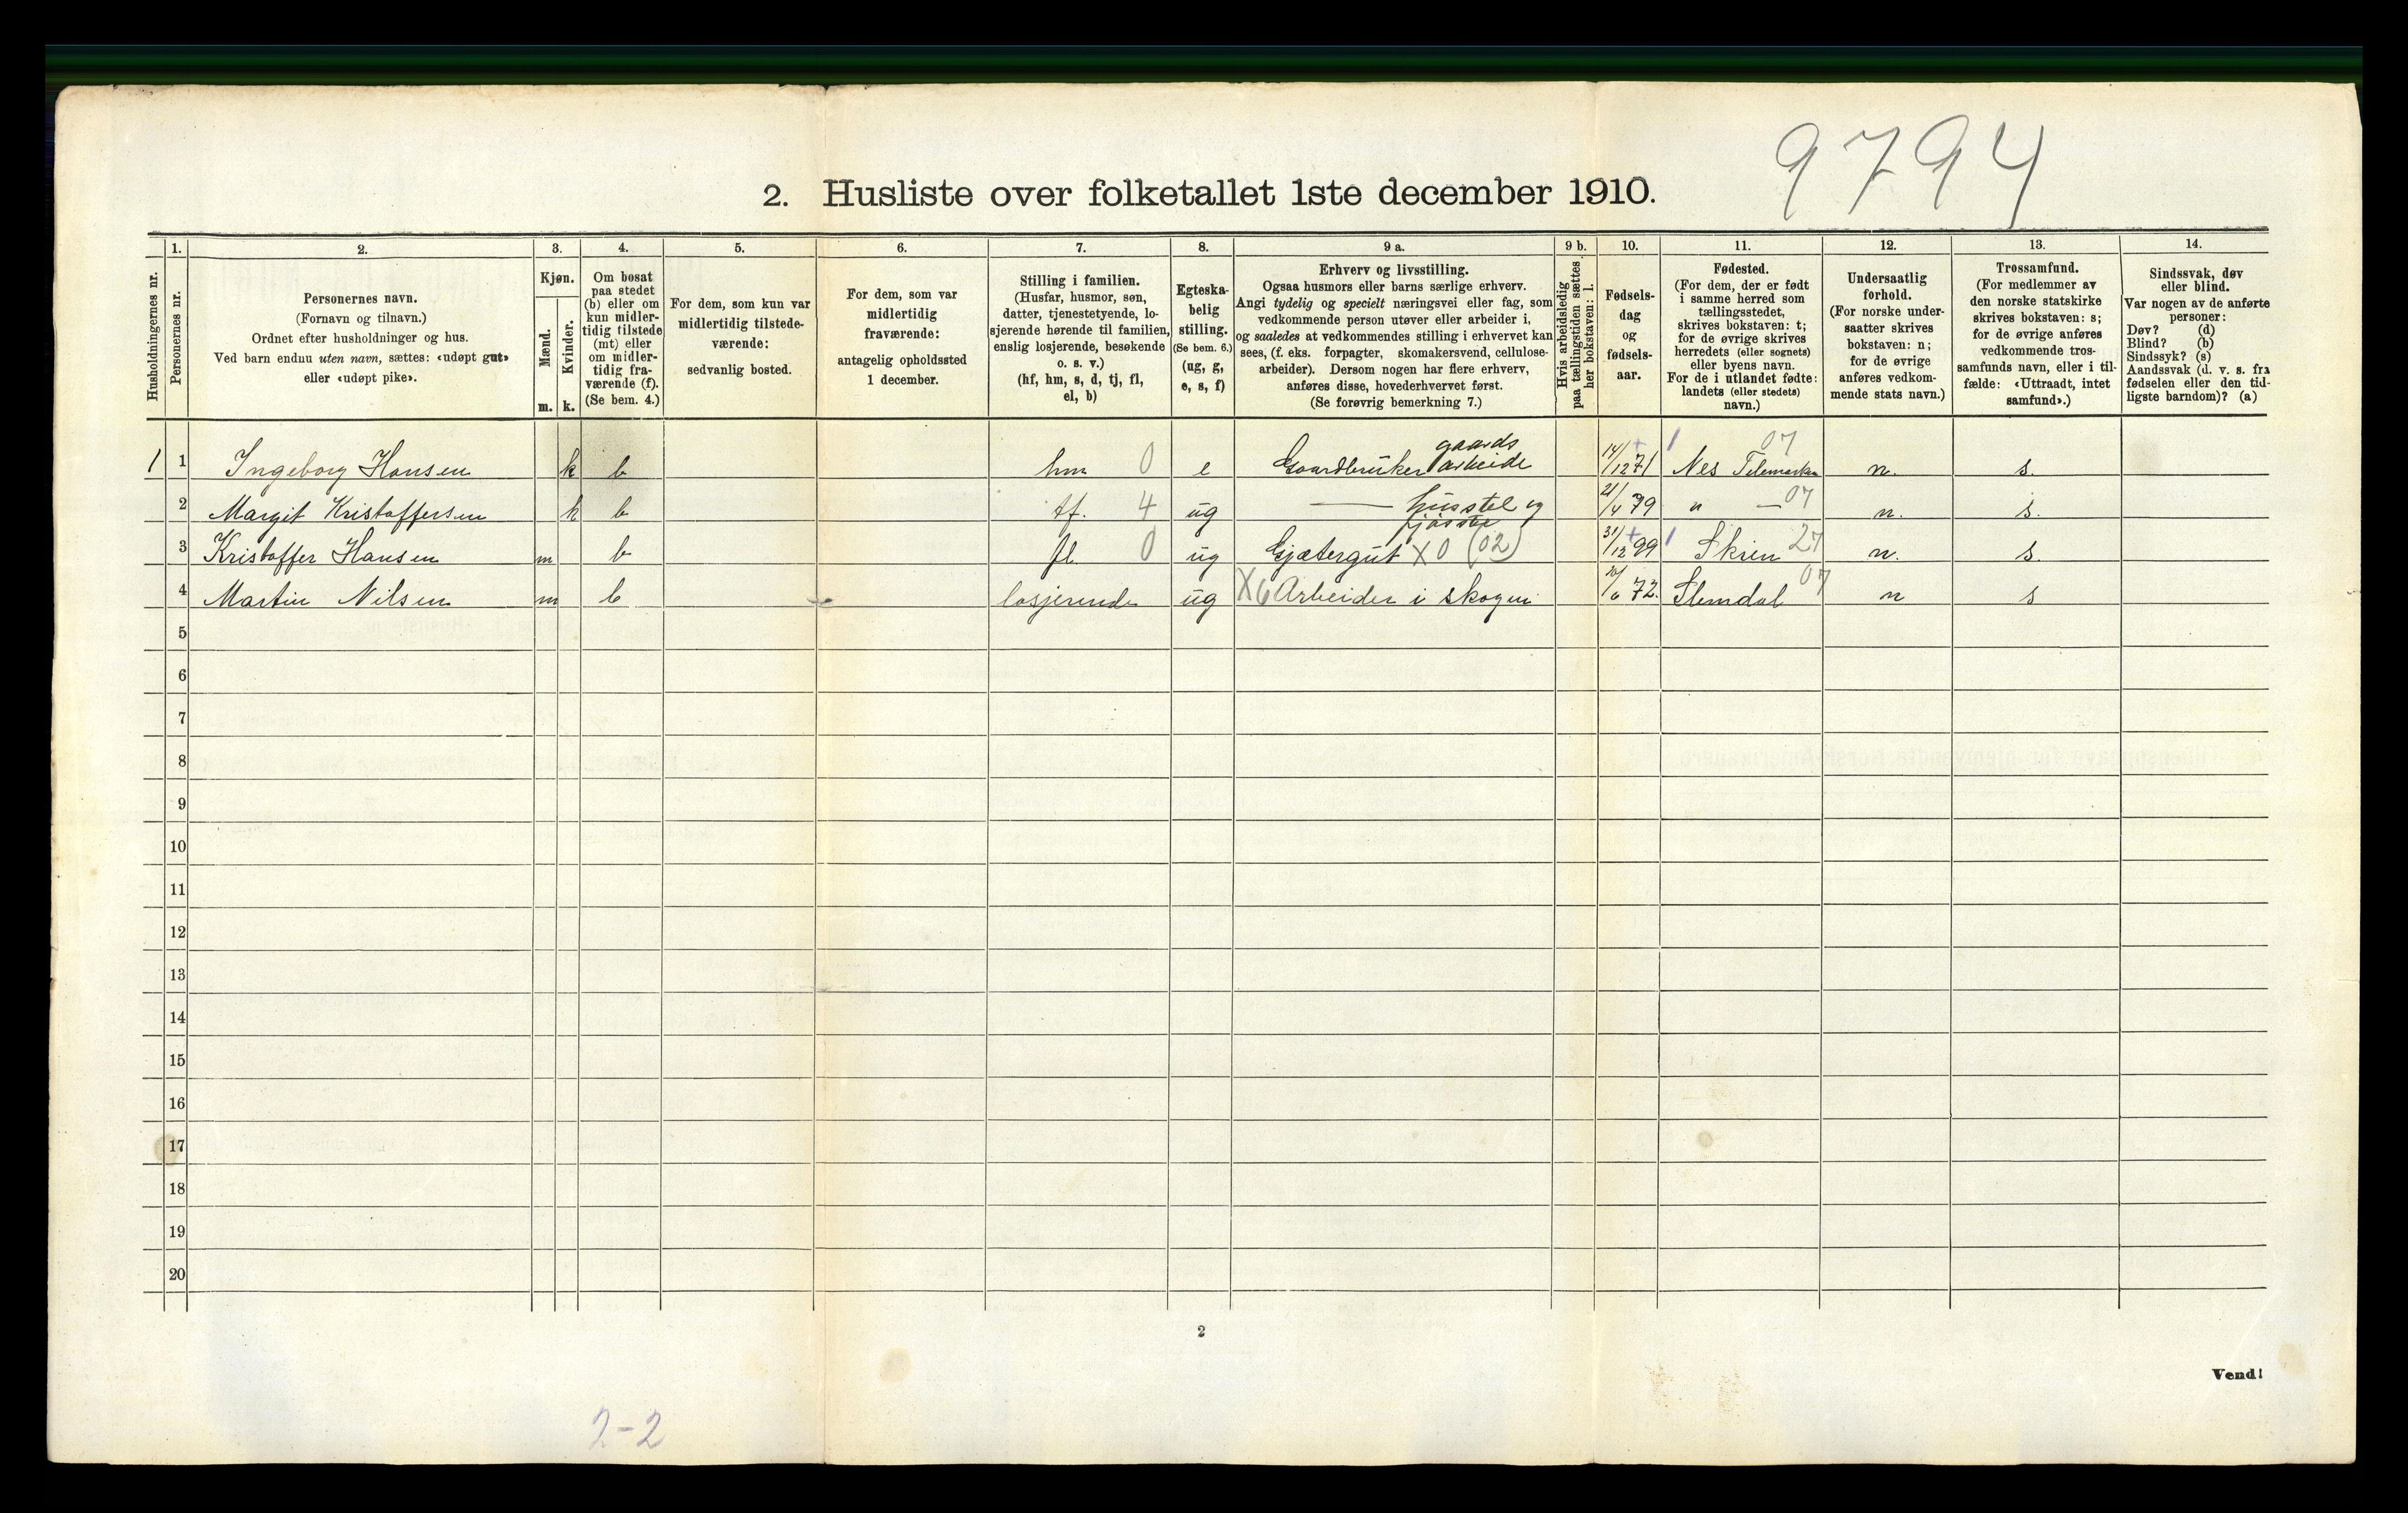 9794
2. Husliste over folketallet 1ste december 1910.
Husholdningernes nr.
1.
Personernes nr.
2.
Personernes navn.
(Fornavn og tilnavn.)
Ordnet efter husholdninger og hus.
Ved barn endnu uten navn, sættes: «udøpt gut»
eller «udøpt pike».
3.
Kjøn.
Mænd.
Kvinder.
m. k.
4.
Om bosat
paa stedet
(b) eller om
kun midler-
tidig tilstede
(mt) eller
om midler-
tidig fra-
værende (f).
(Se bem. 4.)
5.
For dem, som kun var
midlertidig tilstede-
værende:
sedvanlig bosted.
6.
For dem, som var
midlertidig
fraværende:
antagelig opholdssted
1 december.
7.
Stilling i familien.
(Husfar, husmor, søn,
datter, tjenestetyende, lo-
sjerende hørende til familien,
enslig losjerende, besøkende
o. s. v.)
(hf, hm, s, d, tj, fl,
el, b)
8.
Egteska-
belig
stilling.
(Se bem. 6.)
(ug, g,
e, s, f)
9 a.
Erhverv og livsstilling.
Ogsaa husmors eller barns særlige erhverv.
Angi tydelig og specielt næringsvei eller fag, som
vedkommende person utøver eller arbeider i,
og saaledes at vedkommendes stilling i erhvervet kan
sees, (f. eks. forpagter, skomakersvend, cellulose-
arbeider). Dersom nogen har flere erhverv,
anføres disse, hovederhvervet først.
(Se forøvrig bemerkning 7.)
9 b.
Hvis arbeidsledig
paa tællingstiden sættes
her bokstaven: l.
10.
Fødsels-
dag
og
fødsels-
aar.
11.
Fødested.
(For dem, der er født
i samme herred som
tællingsstedet,
skrives bokstaven: t;
for de øvrige skrives
herredets (eller sognets)
eller byens navn.
For de i utlandet fødte:
landets (eller stedets)
navn.)
12.
Undersaatlig
forhold.
(For norske under-
saatter skrives
bokstaven: n;
for de øvrige
anføres vedkom-
mende stats navn.)
13.
Trossamfund.
(For medlemmer av
den norske statskirke
skrives bokstaven: s;
for de øvrige anføres
vedkommende tros-
samfunds navn, eller i til-
fælde: «Uttraadt, intet
samfund».)
14.
Sindssvak, døv
eller blind.
Var nogen av de anførte
personer:
Døv? (d)
Blind? (b)
Sindssyk? (s)
Aandssvak (d. v. s. fra
fødselen eller den tid-
ligste barndom)? (a)
1 1 Ingeborg Hansen k b hm 0 e Gaardbruker gaards arbeide 14/12 71 Nes Telemarken 07 n. s.
2 Margit Kristoffersen k b tf. 4 ug — husstel og fjøsstel 21/4 79 " — 07 n. s.
3 Kristoffer Hansen m b fl 0 ug Gjætergut X0 (02) 31/12 99 Skien 27 n. s.
4 Martin Nilsen m b losjerende ug X6 Arbeider i skogen /6 72. Slemdal 07 n s
5
6
7
8
9
10
11
12
13
14
15
16
17
18
19
20
2
Vend!
2-2